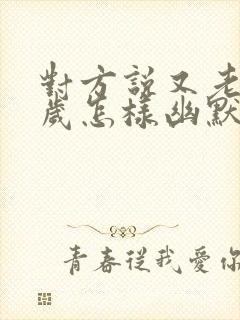 對方說又老
歲怎樣幽默
青春從我愛你